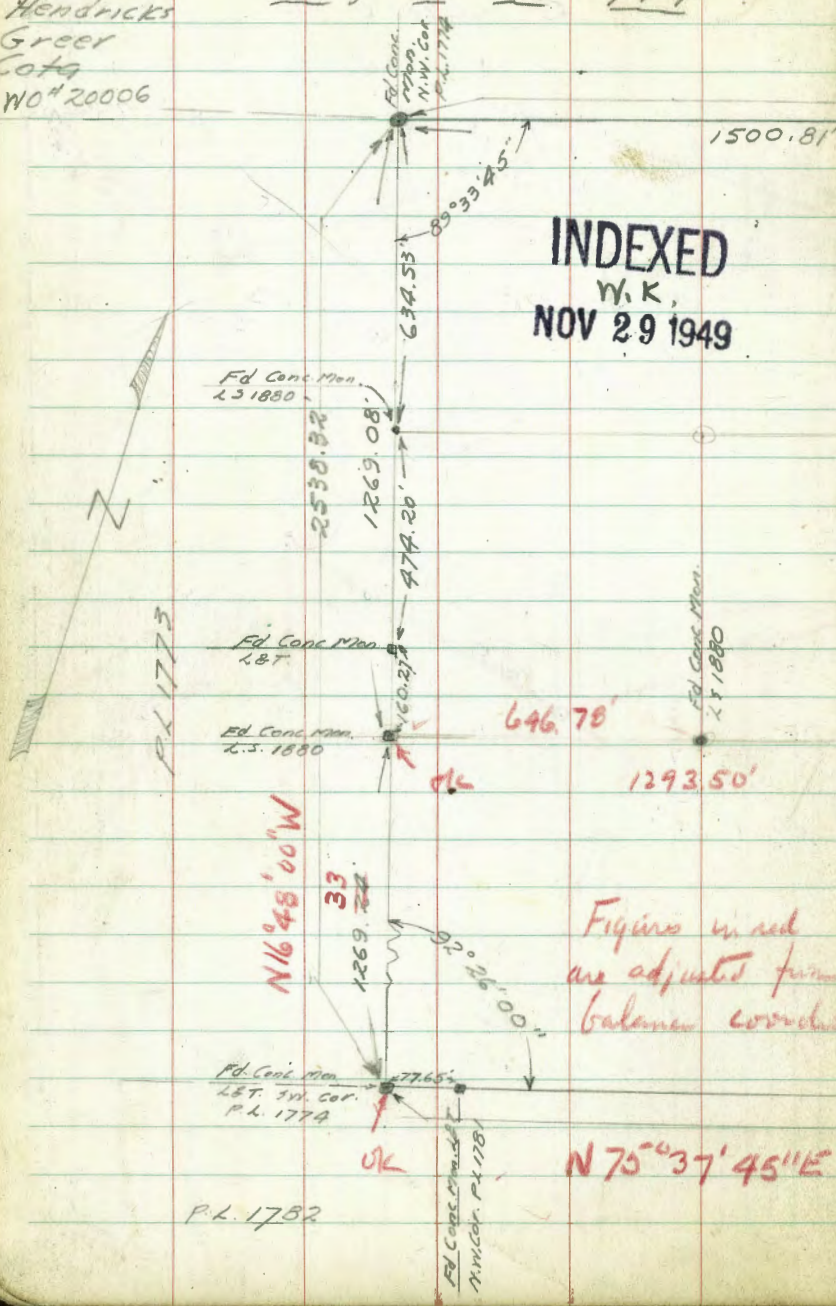 Hendricks
Greer
Cota
WO# 20006
Fd Conc.
Mon.
N.W. Cor.
P.L. 1774
1500.81'
89°33'45"
634.53'
INDEXED
W.K.
NOV 29 1949
Fd Conc. Mon.
LS 1880
2538.32
1269.08'
474.20'
P.L 1773
Fd Conc Mon.
L&T.
160.27'
Fd Conc. Mon.
LS 1880
646.78'
Fd Conc Mon.
L.S. 1880
ok
1293.50'
N16°48'00"W
33
1269.24
Figures in red
are adjusted from
balance coord
Fd. Conc Mon
L&T. S.W. Cor.
P.L. 1774
77.65'
ok
Fd Conc. Mon. L&T
N.W. Cor. P.L 1781
N 75°37'45"E
P.L. 1782